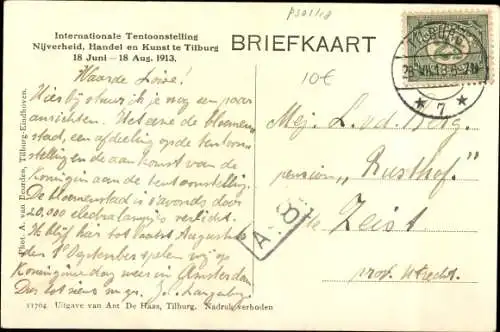 ps01118
Internationale Tentoonstelling
Nijverheid, Handel en Kunst te Tilburg
18 Juni — 18 Aug. 1913.
BRIEFKAART
TILBURG
7
2½
10€
Waarde Loise!
Hierbij stuur ik je nog een paar
ansichten. Het eene de bloemen-
stad, een afdeeling op de tentoon-
stelling en de aankomst van de
Koningin aan de tentoonstelling.
De bloemenstad is 's avonds door
20,000 electra lampjes verlicht.
Ik blijf hier tot laatst Augustus
den 1e September spelen wij op
Koninginnedag weer in Amsterdam
Dus tot ziens
Mej. L. v.d. Berg.
pension „Rusthof."
te Zeist
prov. Utrecht.
Phot. A. van Beurden, Tilburg-Eindhoven.
11704 Uitgave van Ant De Haas, Tilburg. Nadruk verboden